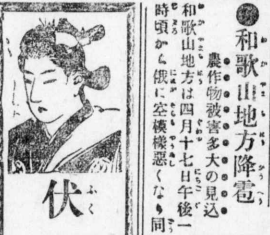 ●和歌山地方降雹
農作物被害多大の見込
和歌山地方は四月十七日午後一
時頃から俄に空模様悪くなり同
伏
ふく